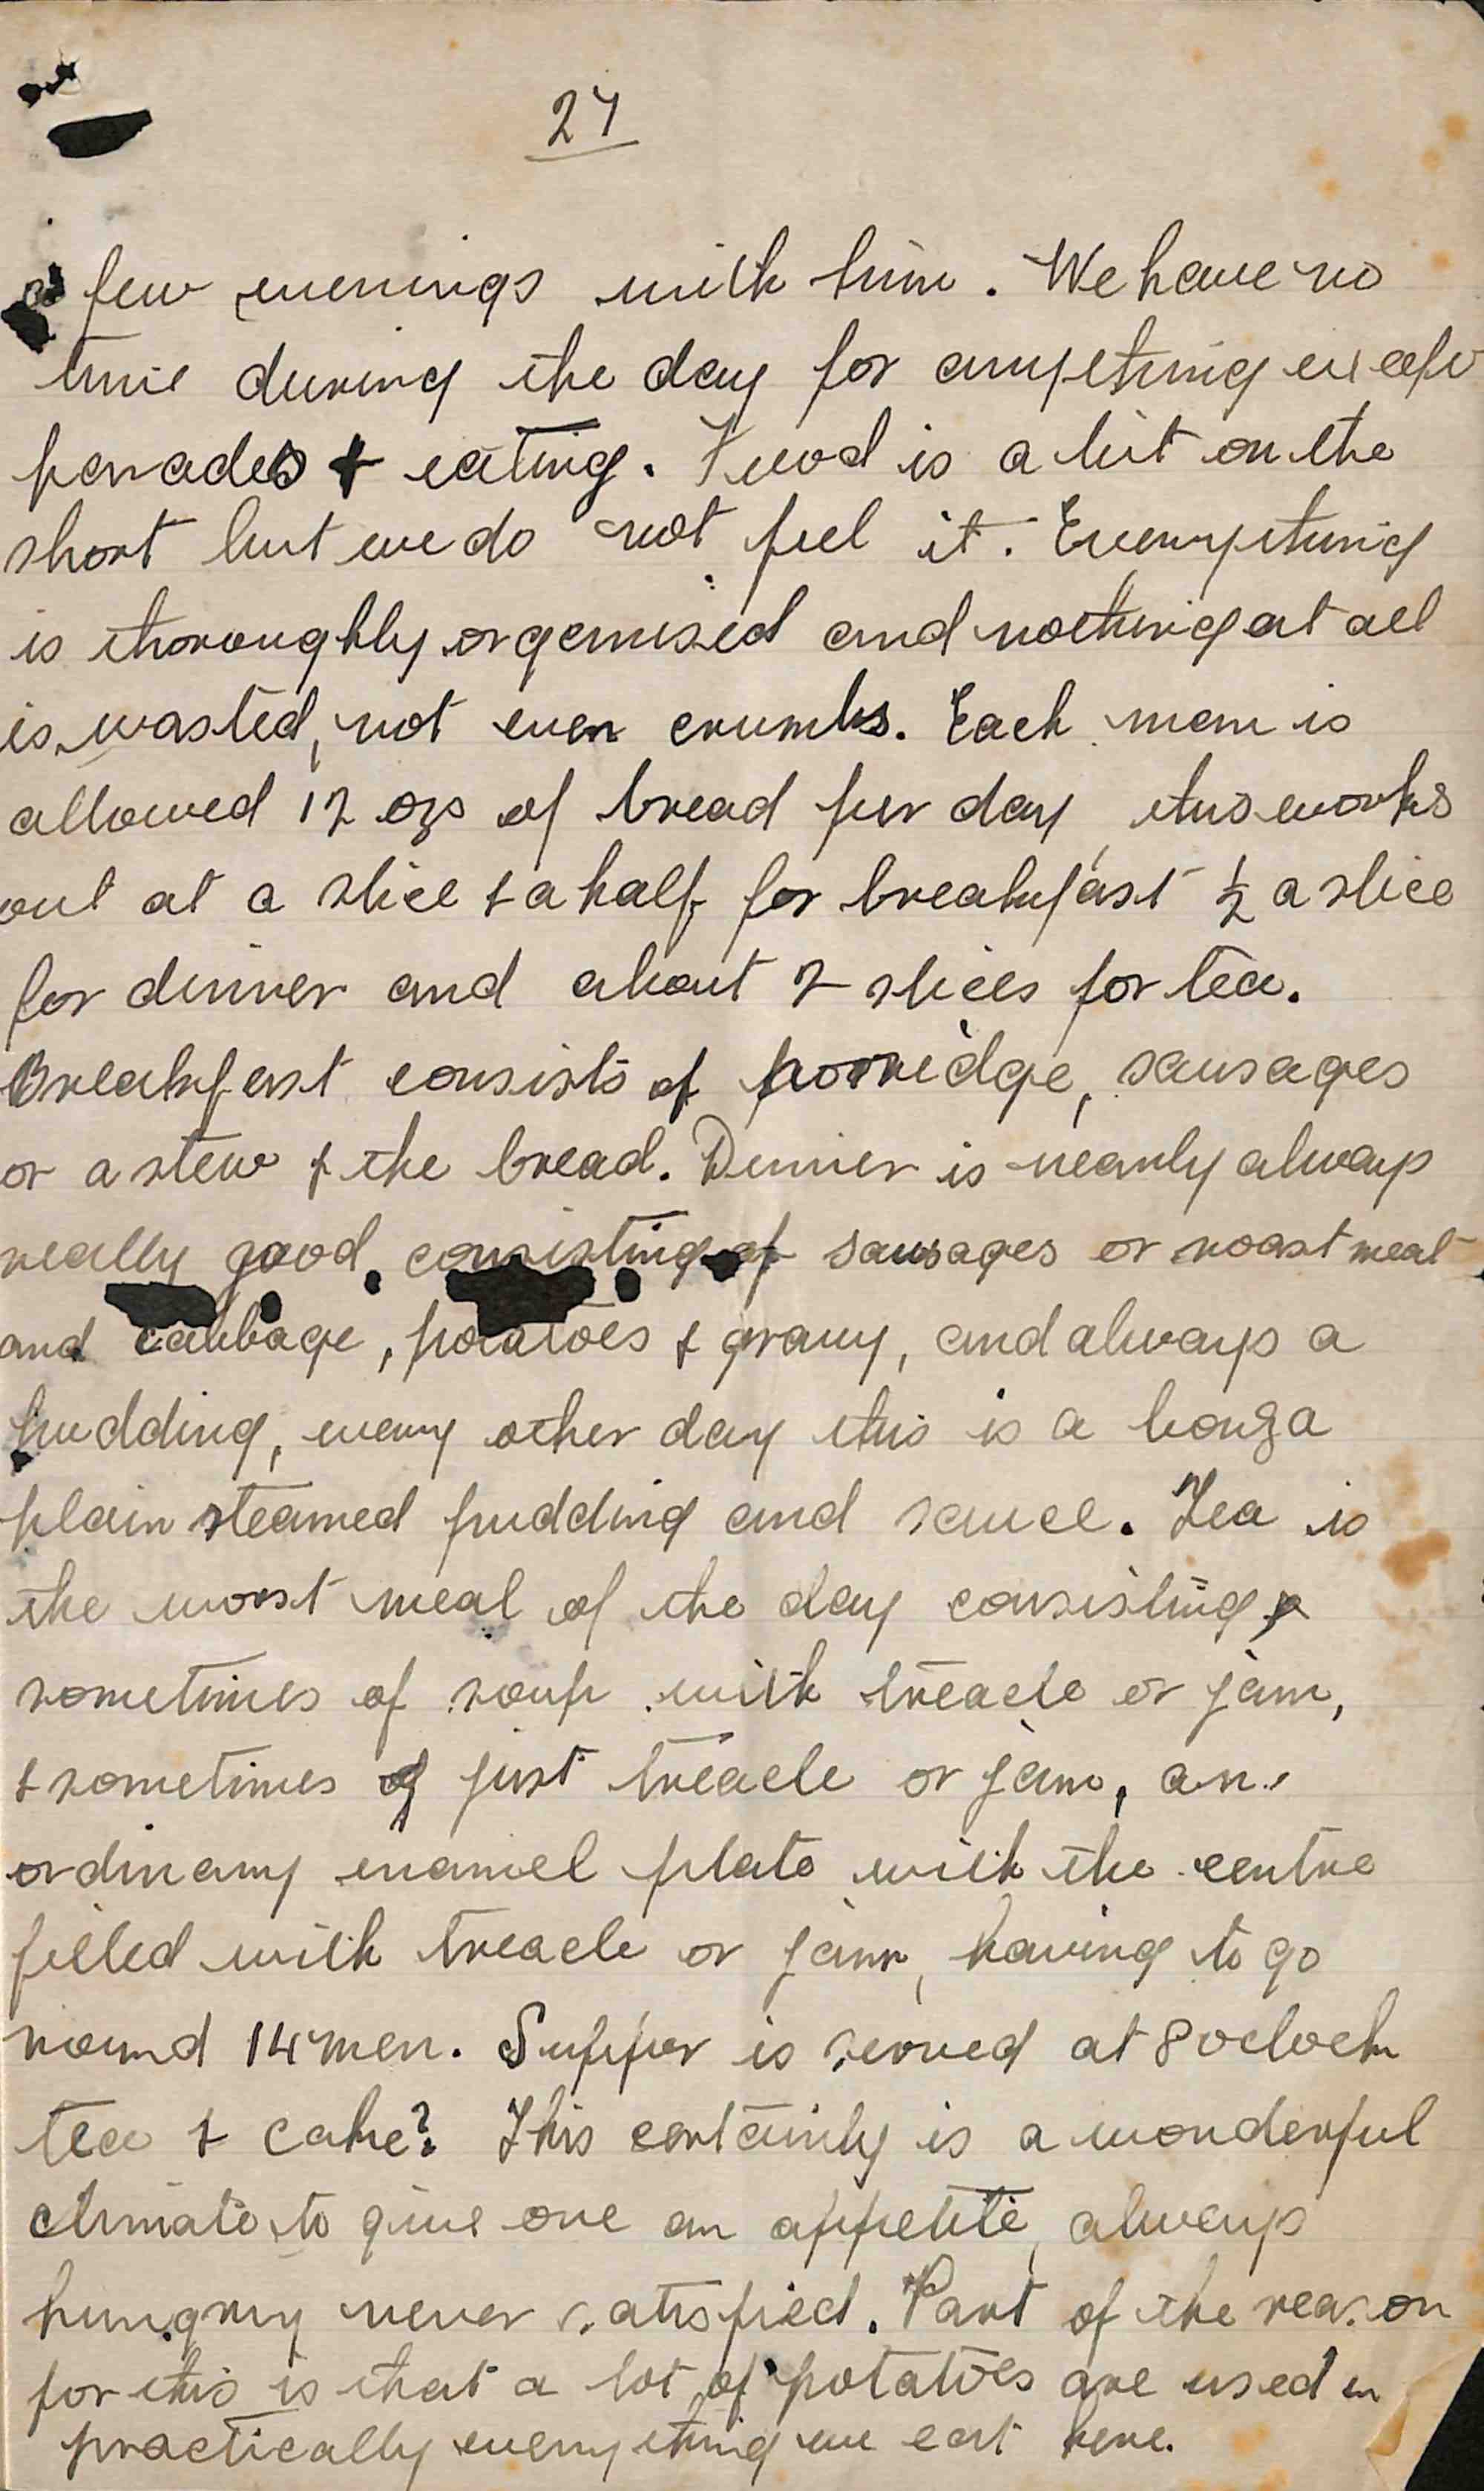 27
a few evenings with him. We have no
time during the day for anything except
parades & eating. Food is a bit on the
short but we do not feel it. Everything
is thoroughly organised and nothing at all
is wasted, not even crumbs. Each man is
allowed 12 ozs of bread per day, this works
out at a slice & a half for breakfast ½ a slice
for dinner and about 2 slices for tea.
Breakfast consists of porridge, sausages
or a stew & the bread. Dinner is nearly always
really good, consisting of sausages or roast meat
and cabbage, potatoes & gravy, and always a
pudding, every other day this is a bonza
plain steamed pudding and sauce. Tea is
the worst meal of the day consisting,
sometimes of soup with treacle or jam,
& sometimes of just treacle or jam, an
ordinary enamel plate with the centre
filled with treacle or jam, having to go
round 14 men. Supper is served at 8 oclock
tea & cake? This certainly is a wonderful
climate to give one an appetite, always
hungry never satisfied. Part of the reason
for this is that a lot of potatoes are used in
practically everything we eat here.